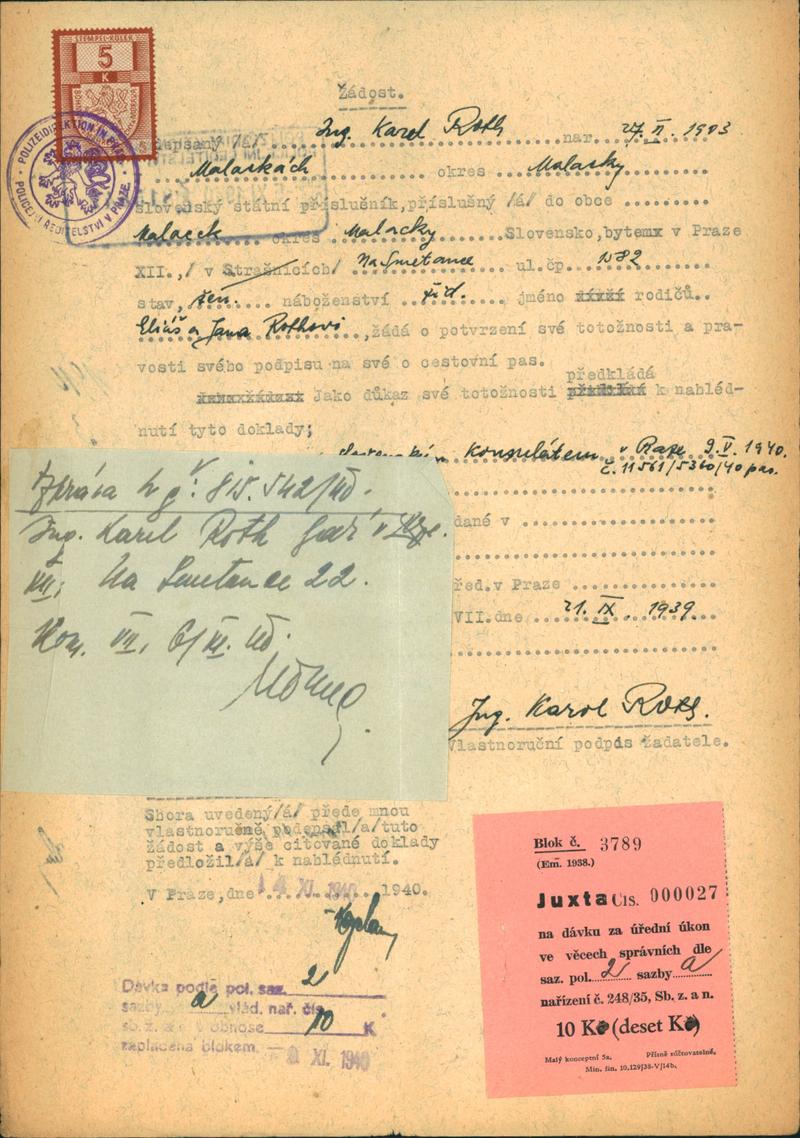 STEMPEL-KOLEK
5
K
POLIZEIDIREKTION IN PRAG
POLICEJNÍ ŘEDITELSTVÍ V PRAZE
Žádost.
Ing. Karel Roth nar. 27.II. 1903
Malackách okres Malacky
slovenský státní příslušník,příslušný /á/ do obce
Malacek okres Malacky Slovensko,bytemx v Praze
XII.,/ v Strašnicích/ Na Smetance ul.čp. 1582
stav, žen. náboženství žid. jméno rodičů..
Eliáš a Jana Rothovi ,žádá o potvrzení své totožnosti a pra-
vosti svého podpisu na své o cestovní pas.
předkládá
Jako důkaz své totožnosti k nahléd-
nutí tyto doklady;
konsulátem v Praze 9.V. 1940.
č. 11561/5360/40 pas.
dané v
řed.v Praze
VII.dne 21. IX. 1939
Zpráva k č: 815.542/40.
Ing. Karel Roth v
XII, Na Smetance 22.
Kom. VII, 6/XI. 40.
Ing. Karol Roth.
Vlastnoruční podpis žadatele.
Shora uvedený/á/ přede mnou
vlastnoručně podepsal/a/tuto
žádost a výše citované doklady
předložil/á/ k nahlédnutí.
V Praze,dne 14 XI. 1940 1940.
Dávka podle pol. saz. 2
sazby a vlád. nař. čís.
sb. z. a n. v obnose 10 K
zaplacena blokem. XI. 1940
Blok č. 3789
(Em. 1938.)
Juxta Čís. 000027
na dávku za úřední úkon
ve věcech správních dle
saz. pol. 2 sazby a
nařízení č. 248/35, Sb. z. a n.
10 Kč (deset Kč)
Malý konceptní 5a. Přísně zúčtovatelné.
Min. fin. 10.129/38-V/14b.